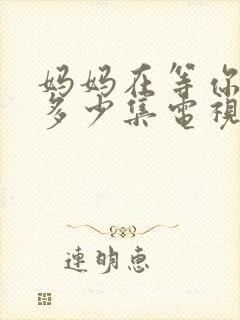 妈妈在等你
多少集電視
連明惠